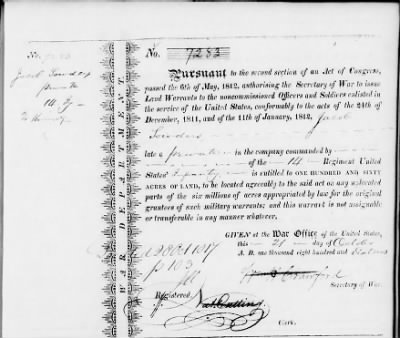 No. 7283
Pursuant to the second section of an Act of Congress,
passed the 6th of May, 1812, authorising the Secretary of War to issue
Land Warrants to the noncommissioned Officers and Soldiers enlisted in
the service of the United States, conformably to the acts of the 24th of
December, 1811, and of the 11th of January, 1812, Jacob
late a private in the company commanded by
of the 14 Regiment United
States' Infantry is entitled to ONE HUNDRED AND SIXTY
ACRES OF LAND, to be located agreeably to the said act on any unlocated
parts of the six millions of acres appropriated by law for the original
grantees of such military warrants; and this warrant is not assignable
or transferable in any manner whatever.
GIVEN at the War Office of the United States,
this 21 day of October
A. D. one thousand eight hundred and Sixteen
Wm H Crawford
Secretary of War.
Registered,
Clerk.
WAR DEPARTMENT.
No. 7283
Jacob
14